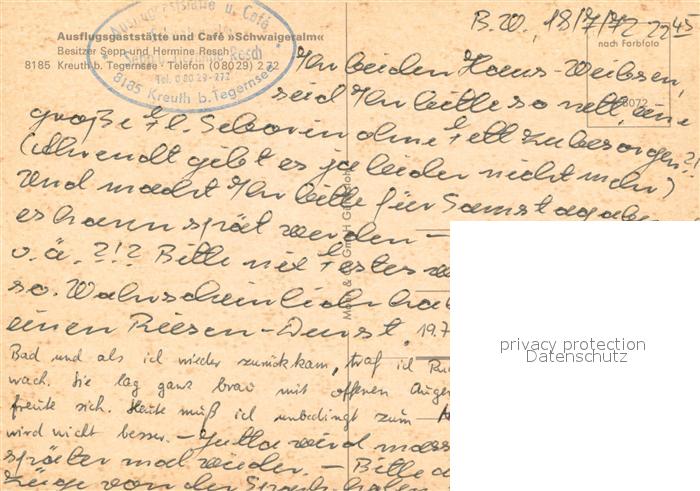 B.W., 18/7/72 22⁴⁵
Ausflugsgaststätte und Café »Schwaigeralm«
Besitzer Sepp und Hermine Resch
8185 Kreuth b. Tegernsee - Telefon (0 80 29) 2 72
Ausflugsgaststätte u. Café
Resch
Tel. 0 80 29-272
8185 Kreuth b. Tegernsee
nach Farbfoto
8072
Ihr beiden Haus-
seid Ihr bitte so nett, eine
große Fl. ohne Fett zu besorgen?!
( gibt es ja leider nicht mehr)
Und macht Ihr bitte für Samstag
es kann spät werden –
o.ä. ?!? Bitte nix festes
so. Wahrscheinlich
einen Riesen-Durst. 19.7
Bad und als ich wieder zurückkam, traf ich
wach. Sie lag ganz brav mit offenen Augen
freute sich. Heute muß ich unbedingt zum
wird nicht besser. – Jutta wird
später mal wieder. – Bitte
Züge von der
privacy protection
Datenschutz